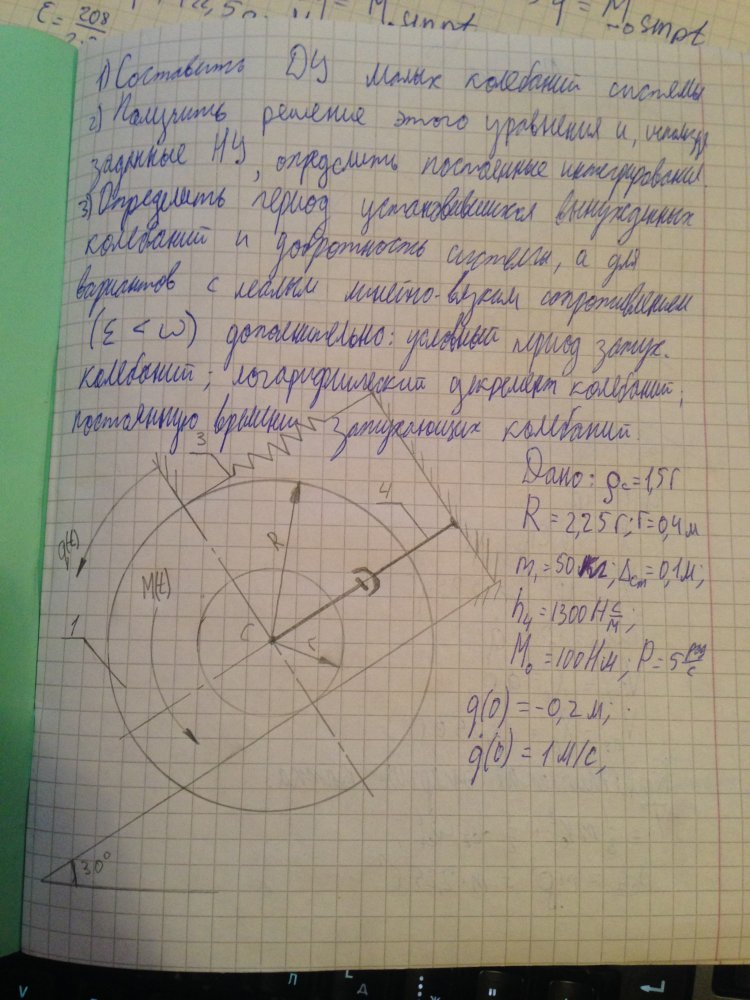 ε = 208
M
- sin pt
M
-o sin pt
1) Составить ДУ малых колебаний системы
2) Получить решение этого уравнения и, используя
заданные НУ, определить постоянные интегрирования.
3) Определить период установившихся вынужденных
колебаний и добротность системы, а для
вариантов с малым линейно-вязким сопротивлением
(ε < ω) дополнительно: условный период затух.
колебаний; логарифмический декремент колебаний;
постоянную времени затухающих колебаний.
Дано: ρc = 1,5 r
R = 2,25 r; r = 0,4 м
m1 = 50 кг; Δст = 0,1 м;
h4 = 1300 Н с/м;
M0 = 100 Нм; P = 5 рад/с
q(0) = -0,2 м;
q̇(0) = 1 м/с;
3
4
q(t)
R
M(t)
1
C
r
30°